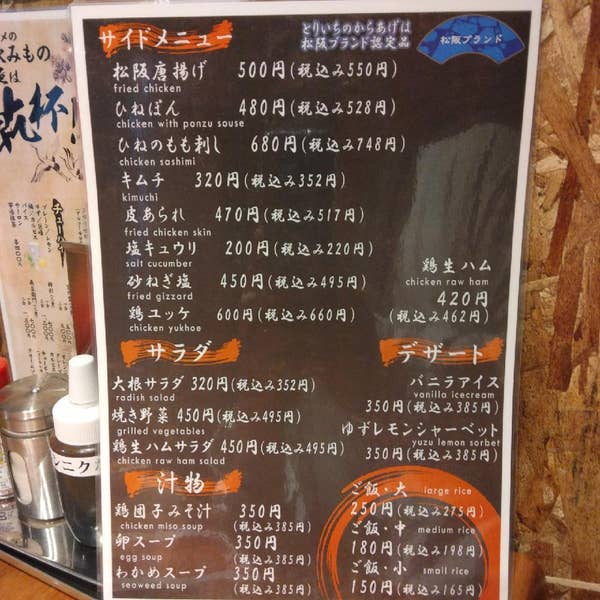 とりいちのからあげは
松阪ブランド認定品
松阪ブランド
サイドメニュー
松阪唐揚げ 500円(税込み550円)
fried chicken
ひねぽん 480円(税込み528円)
chicken with ponzu souse
ひねのもも刺し 680円(税込み748円)
chicken sashimi
キムチ 320円(税込み352円)
kimuchi
皮あられ 470円(税込み517円)
fried chicken skin
塩キュウリ 200円(税込み220円)
salt cucumber
砂ねぎ塩 450円(税込み495円)
fried gizzard
鶏ユッケ 600円(税込み660円)
chicken yukhoe
鶏生ハム
chicken raw ham
420円
(税込み462円)
サラダ
大根サラダ 320円(税込み352円)
radish salad
焼き野菜 450円(税込み495円)
grilled vegetables
鶏生ハムサラダ 450円(税込み495円)
chicken raw ham salad
デザート
バニラアイス
vanilla icecream
350円(税込み385円)
ゆずレモンシャーベット
yuzu lemon sorbet
350円(税込み385円)
汁物
鶏団子みそ汁 350円
chicken miso soup (税込み385円)
卵スープ 350円
egg soup (税込み385円)
わかめスープ 350円
seaweed soup (税込み385円)
ご飯・大 large rice
250円(税込み275円)
ご飯・中 medium rice
180円(税込み198円)
ご飯・小 small rice
150円(税込み165円)
乾杯
チューハイ
ンニク